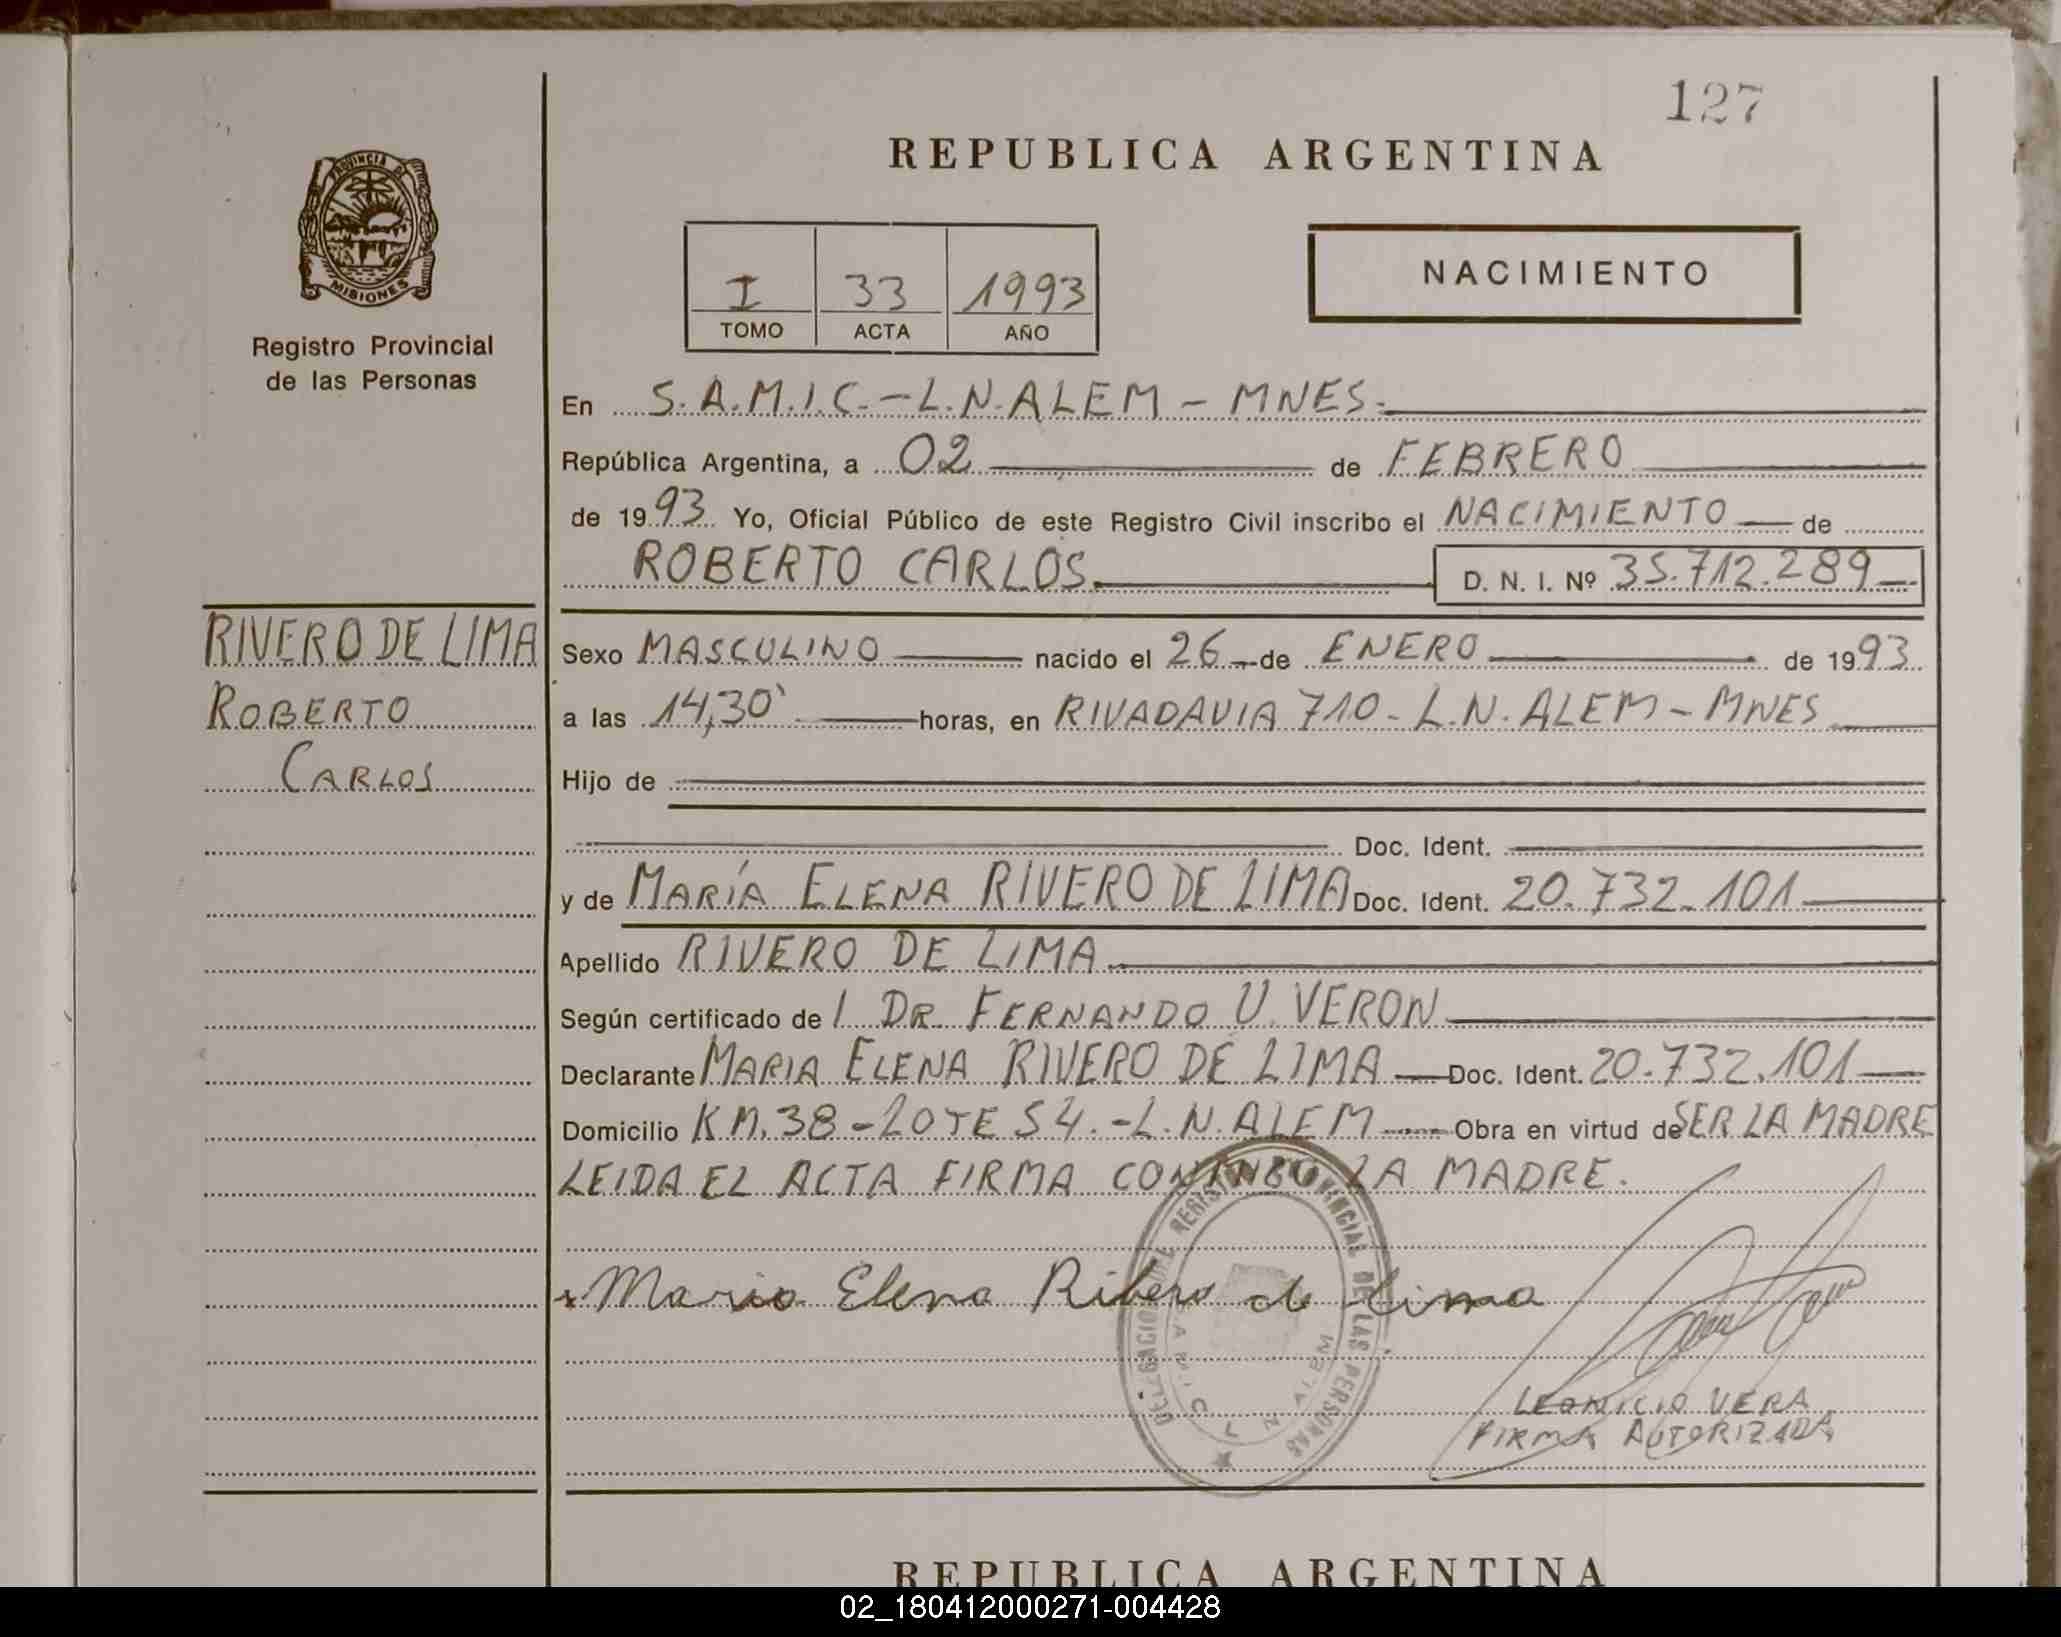 127
REPUBLICA ARGENTINA
PROVINCIA DE
MISIONES
Registro Provincial
de las Personas
I 33 1993
TOMO ACTA AÑO
NACIMIENTO
En S.A.M.I.C.-L.N.ALEM - MNES.
República Argentina, a 02 de FEBRERO
de 1993 Yo, Oficial Público de este Registro Civil inscribo el NACIMIENTO de
ROBERTO CARLOS D. N. I. Nº 35.712.289
RIVERO DE LIMA
ROBERTO
CARLOS
Sexo MASCULINO nacido el 26 de ENERO de 1993
a las 14,30' horas, en RIVADAVIA 710 - L.N. ALEM - MNES
Hijo de
Doc. Ident.
y de MARÍA ELENA RIVERO DE LIMA Doc. Ident. 20.732.101
Apellido RIVERO DE LIMA
Según certificado de l DR. FERNANDO U. VERON
Declarante MARIA ELENA RIVERO DE LIMA Doc. Ident. 20.732.101
Domicilio KM.38 - LOTE 54.-L.N.ALEM Obra en virtud de SER LA MADRE
LEIDA EL ACTA FIRMA CONMIGO LA MADRE.
Maria Elena Ribero de Lima
REGISTRO PROVINCIAL DE LAS PERSONAS
L. N. ALEM
LEONICIO VERA
FIRMA AUTORIZADA
REPUBLICA ARGENTINA
02_180412000271-004428